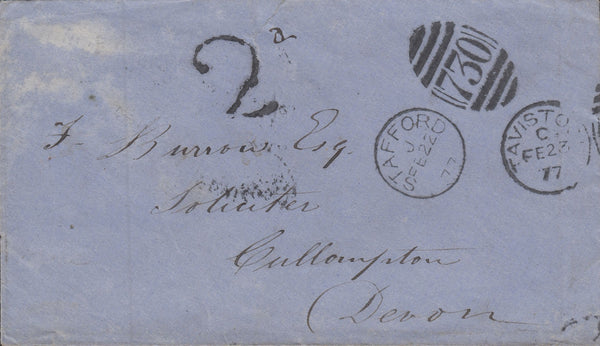 2
2
730
STAFFORD
J
FE 22
77
TAVISTO
C
FE 23
77
F. Burrow Esq.
Soliciter
Cullompton
Devon